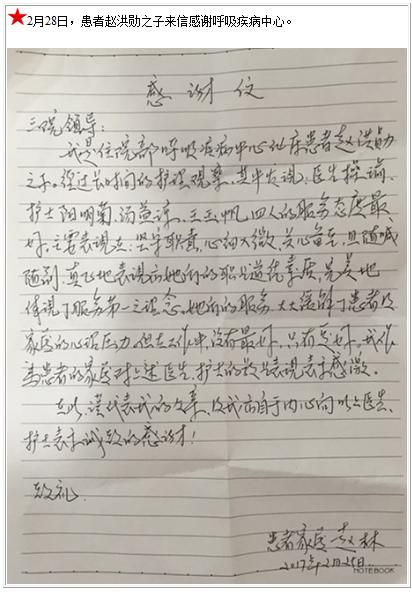 ★2月28日，患者赵洪勋之子来信感谢呼吸疾病中心。
感谢信
三院领导：
我是住院部呼吸疾病中心 床患者赵洪勋
之子。经过长时间的护理观察，其中发现：医生操瑜、
护士阳明菊、汤 、王 帆，四人的服务态度最
好，主要表现在：坚守职责，心细入微，关心备至，且随喊
随到，真正地表现 她们的职业道德素质，完美地
体现了服务第一之理念。她们的服务，大大缓解了患者及
家属的心理压力。但在工作中，没有最好，只有更好。我作
为患者的家属对上述医生、护士的 表现表示感激。
在此，谨代表我的父亲，及我 自于内心向以上医生、
护士表示诚致的感谢！
致礼
患者家属 赵林
2017年2月25日
NOTEBOOK